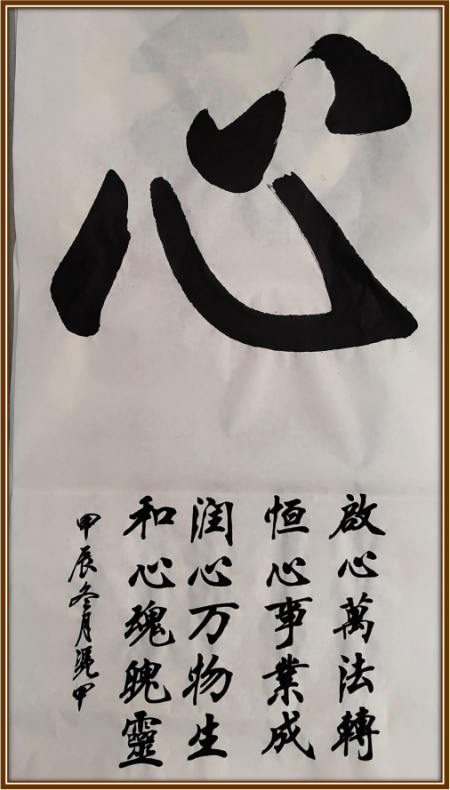 心
啟心萬法轉
恒心事業成
润心万物生
和心魂魄靈
甲辰冬月